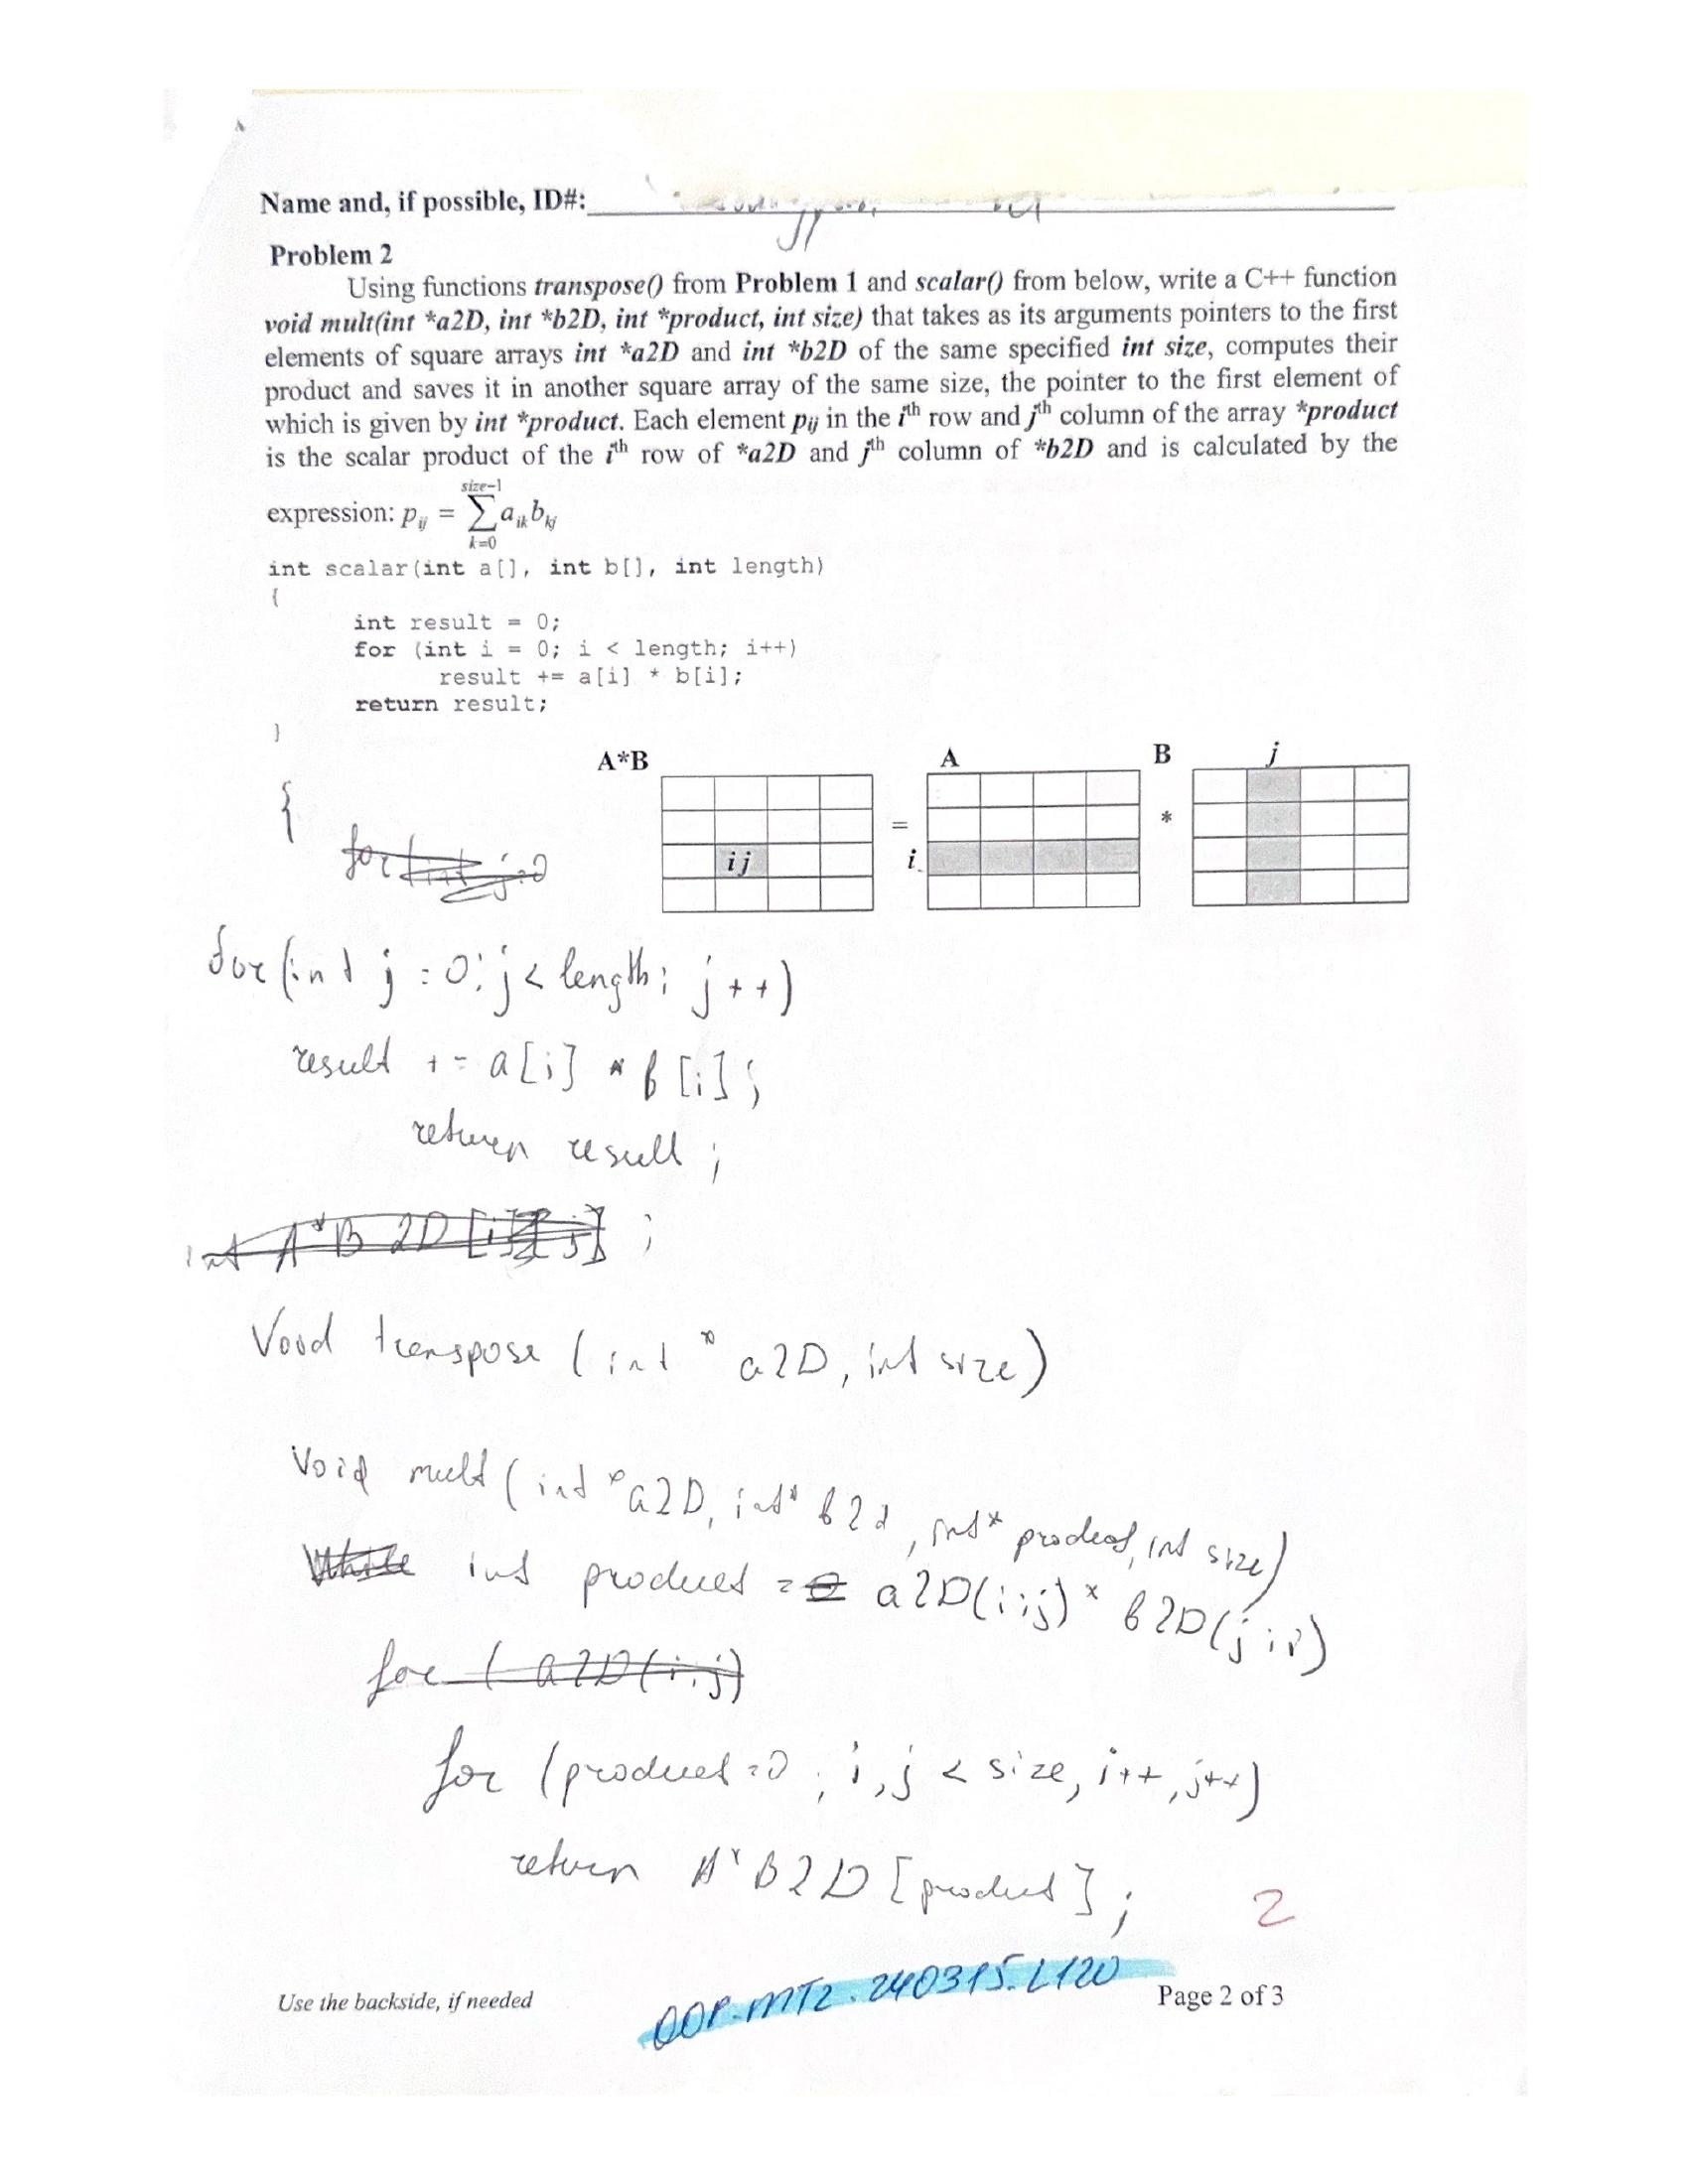 Name and, if possible, ID#:
Problem 2
Using functions transpose() from Problem 1 and scalar() from below, write a C++ function
void mult(int *a2D, int *b2D, int *product, int size) that takes as its arguments pointers to the first
elements of square arrays int *a2D and int *b2D of the same specified int size, computes their
product and saves it in another square array of the same size, the pointer to the first element of
which is given by int *product. Each element pij in the ith row and jth column of the array *product
is the scalar product of the ith row of *a2D and jth column of *b2D and is calculated by the
size-1
expression: pij = ∑ aik bkj
k=0
int scalar(int a[], int b[], int length)
{
int result = 0;
for (int i = 0; i < length; i++)
result += a[i] * b[i];
return result;
}
A*B A B j
= *
ij i
{
for (int j=0
for (int j = 0; j < length; j++)
result += a[i] * b[i];
return result;
int A*B 2D [i][j];
Void transpose (int * a2D, int size)
Void mult (int *a2D, int* b2d, int* product, int size)
While int product = 0 a2D(i;j) * b2D(j;i)
for ( a2D(i;j)
for (product=0; i,j < size, i++, j++)
return A*B2D [product];
2
Use the backside, if needed
OOP.MT2.240315.L120
Page 2 of 3